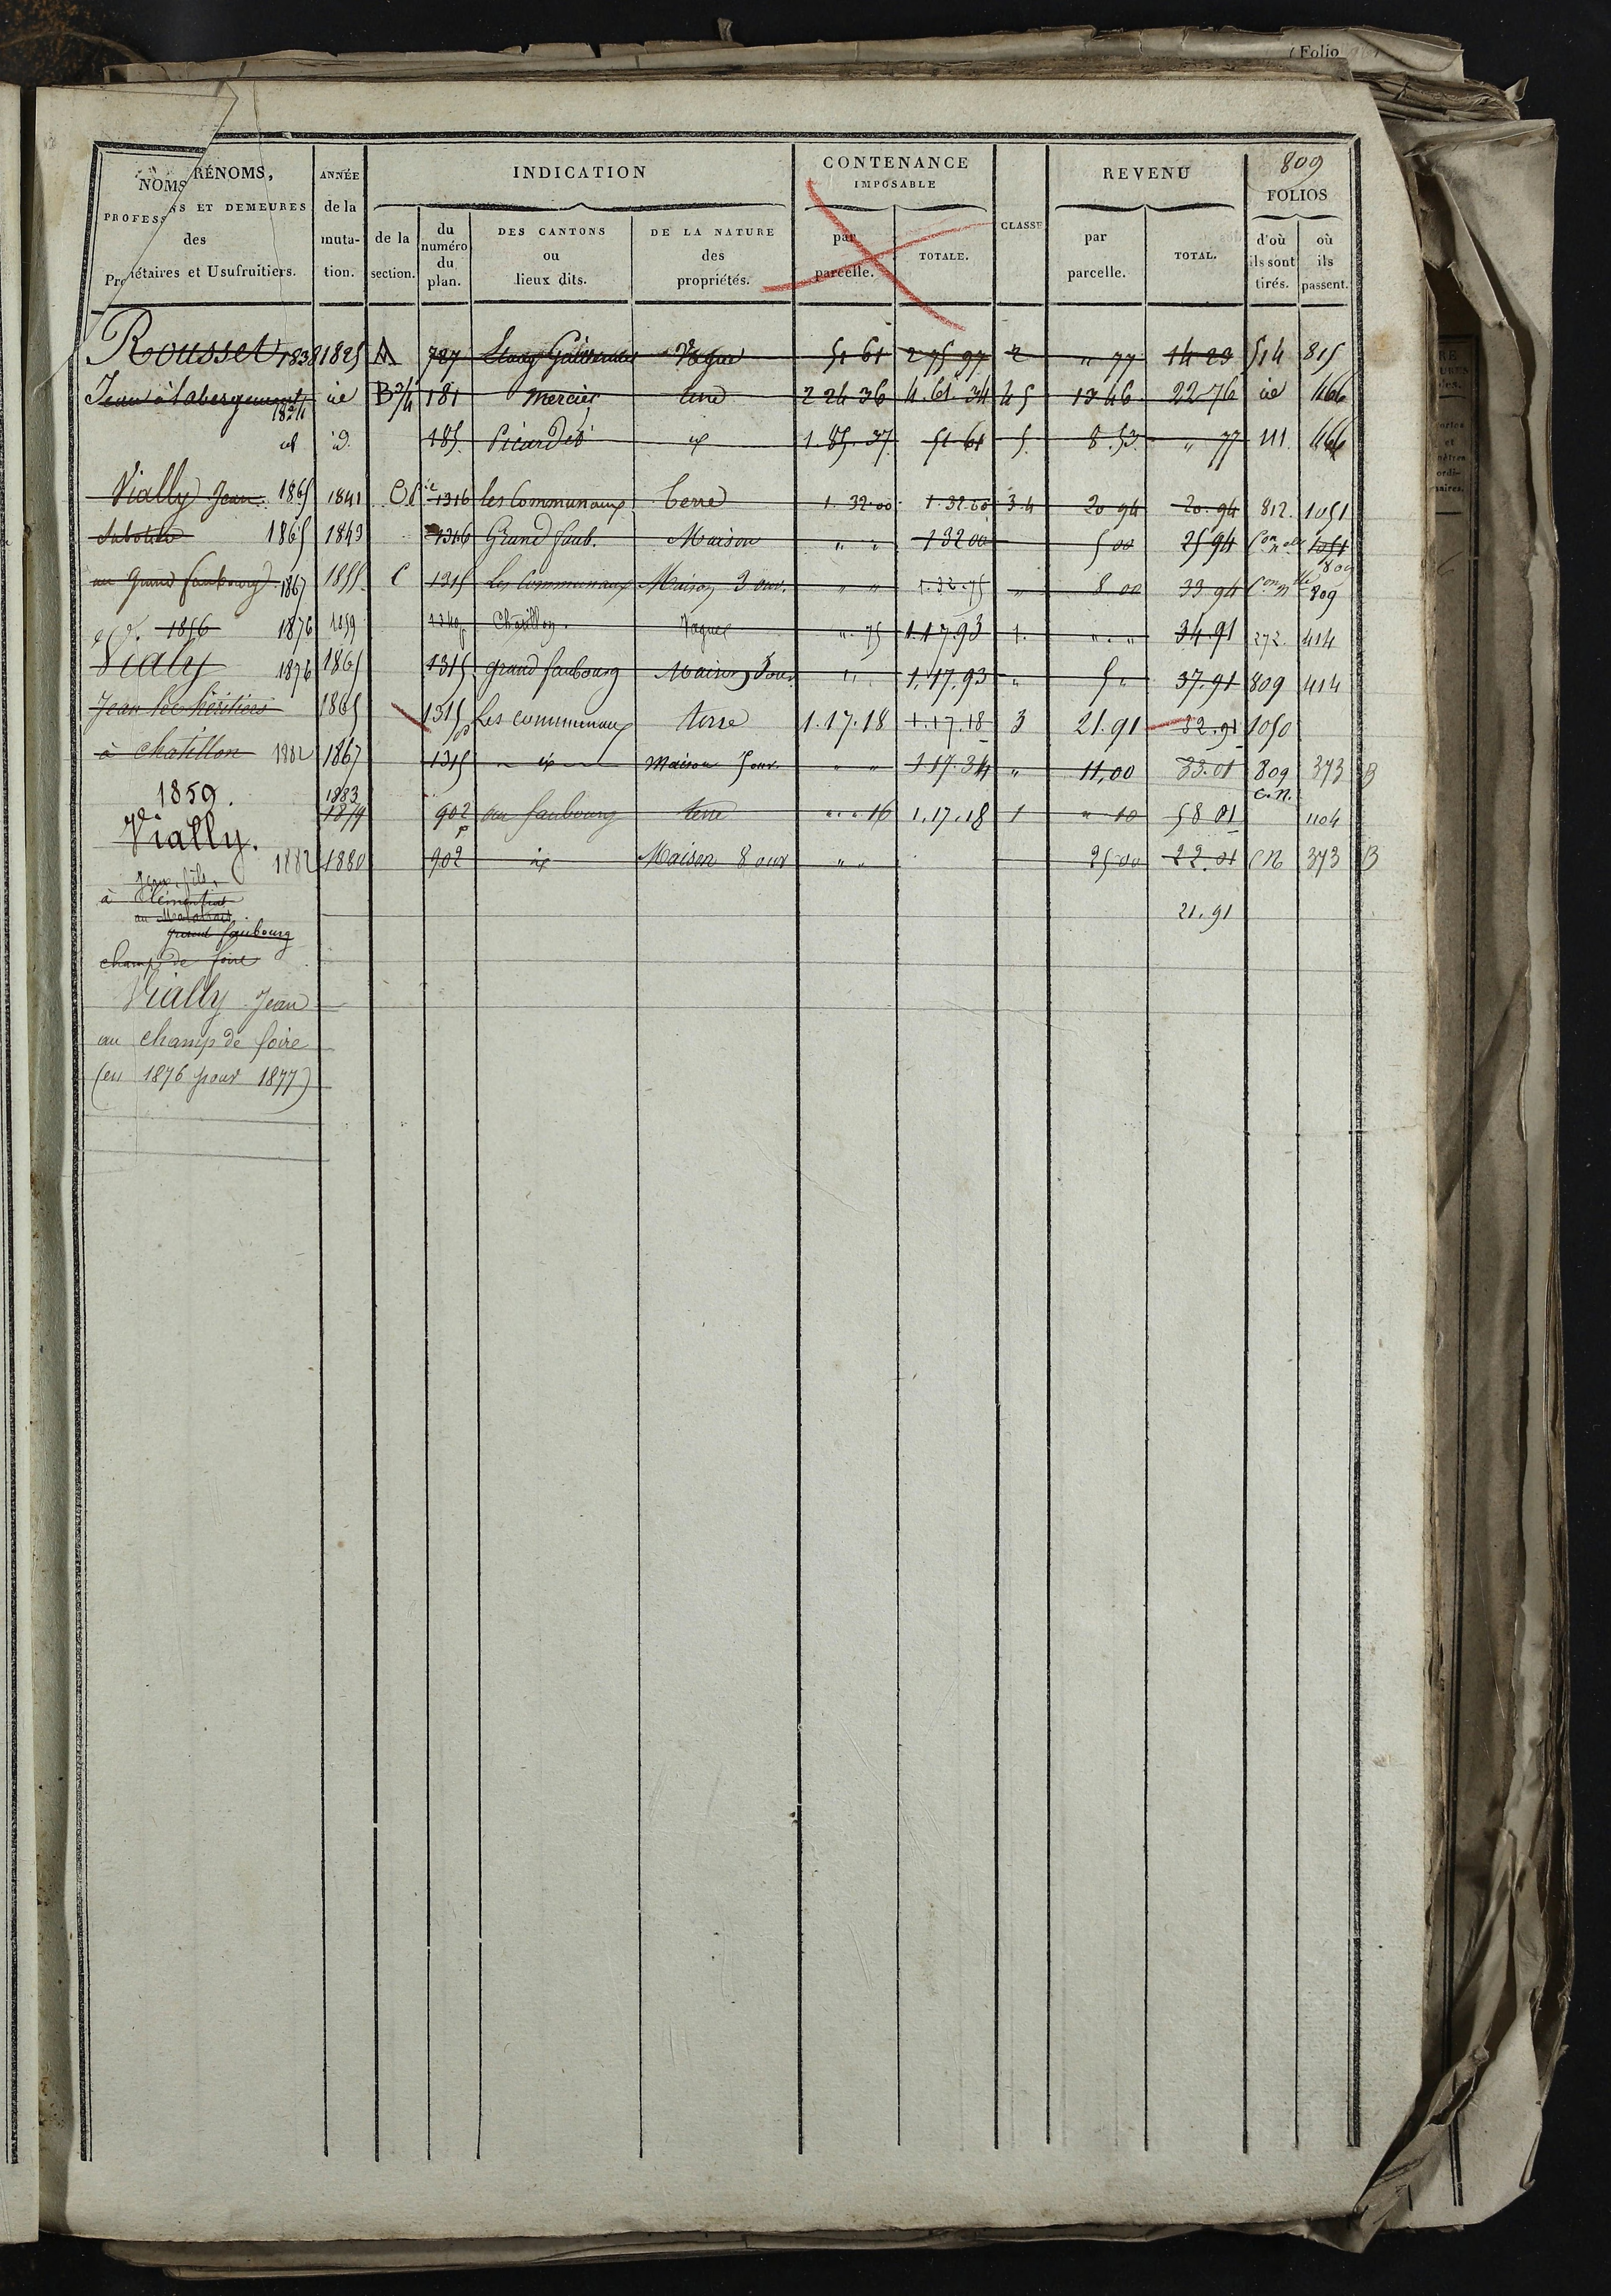 (Folio
809
NOMS, RÉNOMS,
PROFESS NS ET DEMEURES
des
Propriétaires et Usufruitiers.
ANNÉE
de la
muta-
tion.
INDICATION
de la
section.
du
numéro
du
plan.
DES CANTONS
ou
lieux dits.
DE LA NATURE
des
propriétés.
CONTENANCE
IMPOSABLE
par
parcelle.
TOTALE.
CLASSE
REVENU
par
parcelle.
TOTAL.
FOLIOS
d'où
ils sont
tirés.
où
ils
passent.
Rousset 1838 1825 A 787 Vague 51 61 2 75 97 2 " 77 14 23 514 815
Jean à l'abergement 1824 id B 181 mercier terre 2 24 36 4.61.34 4 5 13 46 22 76 id 466
id id. 185 Picardes id 1.85.37 51 61 5 8.53 " 77 111 466
Vially Jean. 1865 1841 1316 les Communaux Terre 1.32.00 1.32.00 3.4 20 94 20.94 812. 1051
Sabotier 1865 1843 1316 Grand faub. Maison " " 1 32 00 5 00 25 94 1051
809
au Grand faubourg 1867 1855 C 1315 Les Communaux Maison 3 ouv. " " 1.32.75 " 8 00 33 94 809
1856 1876 1859 1340 Chatillon. Vague ". 75 1.17.93 1. " . " 34.91 272. 414
Vialy 1876 1865 1315 grand faubourg Maison " " 1.17.93 " 5 " 37.91 809 414
Jean les héritiers 1865 1315 Les communaux terre 1.17.18 1.17.18 3 21.91 32.91 1050
à chatillon 1882 1867 1315 id Maison 5 ouv. " " 1 17.34 " 11,00 33.01 809 373 B
1859. 1883
1879 902 p au faubourg terre " . " 16 1.17.18 1 " 10 58 01 C.N. 1104
Vially. 1882 1880 902 id Maison 8 ouv " " 25 00 22.01 CN 373 B
Jean, fils,
à
au
grand faubourg
21.91
champ de foire
Vially Jean
au champ de foire
(en 1876 pour 1877)